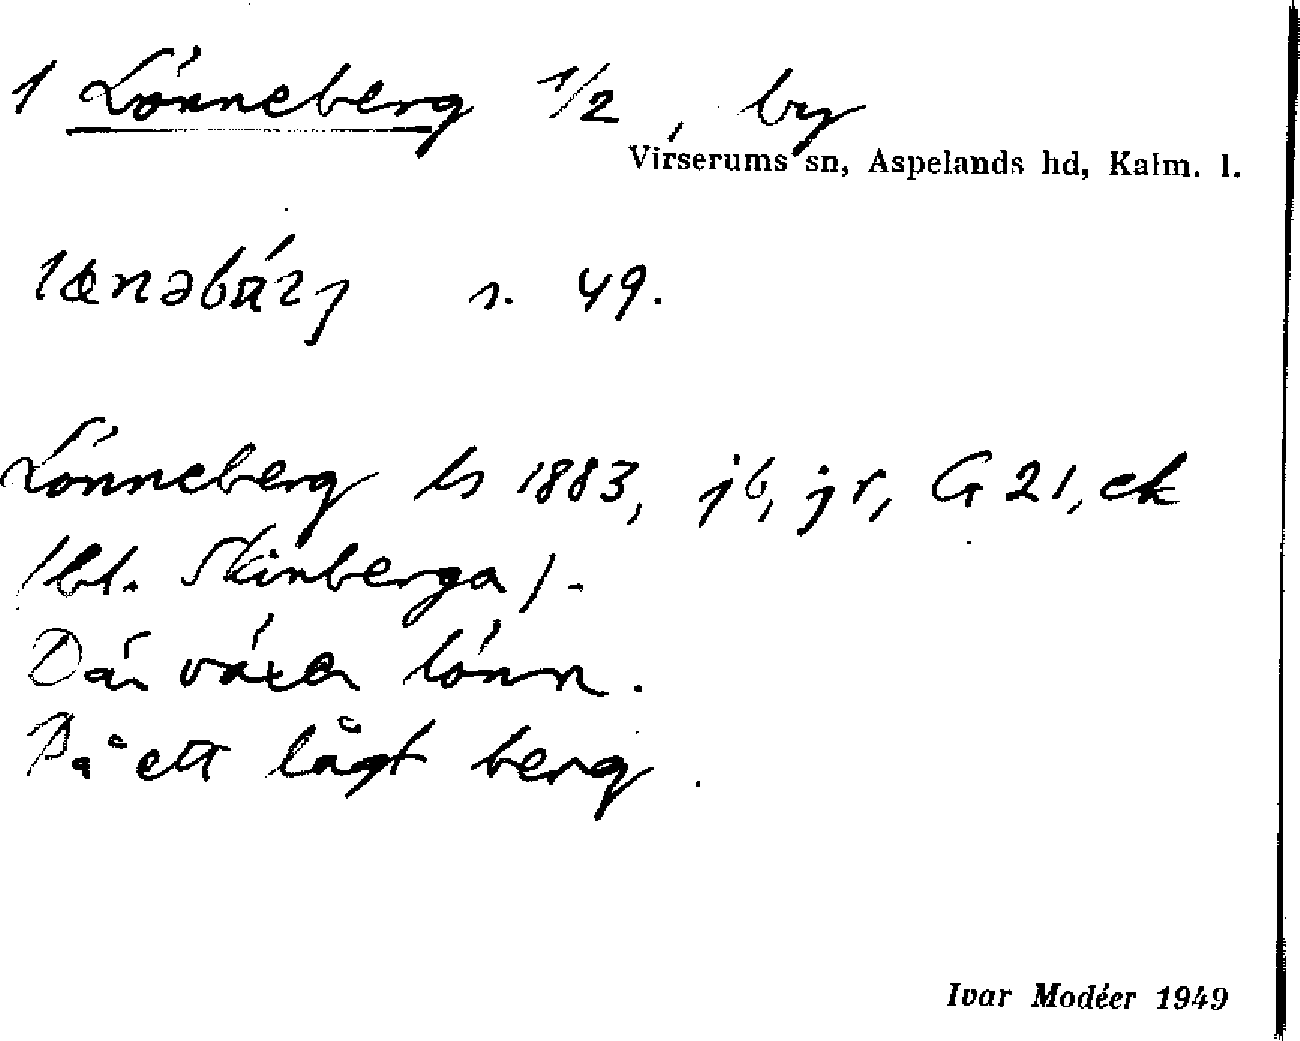 1 Lönneberg 1/2, by
Virserums sn, Aspelands hd, Kalm. l.
s. 49.
Lönneberg ls 1883, jb, jr, G 21, ek
(bl. Skinberga).
Där växer lönn.
På ett lågt berg.
Ivar Modéer 1949